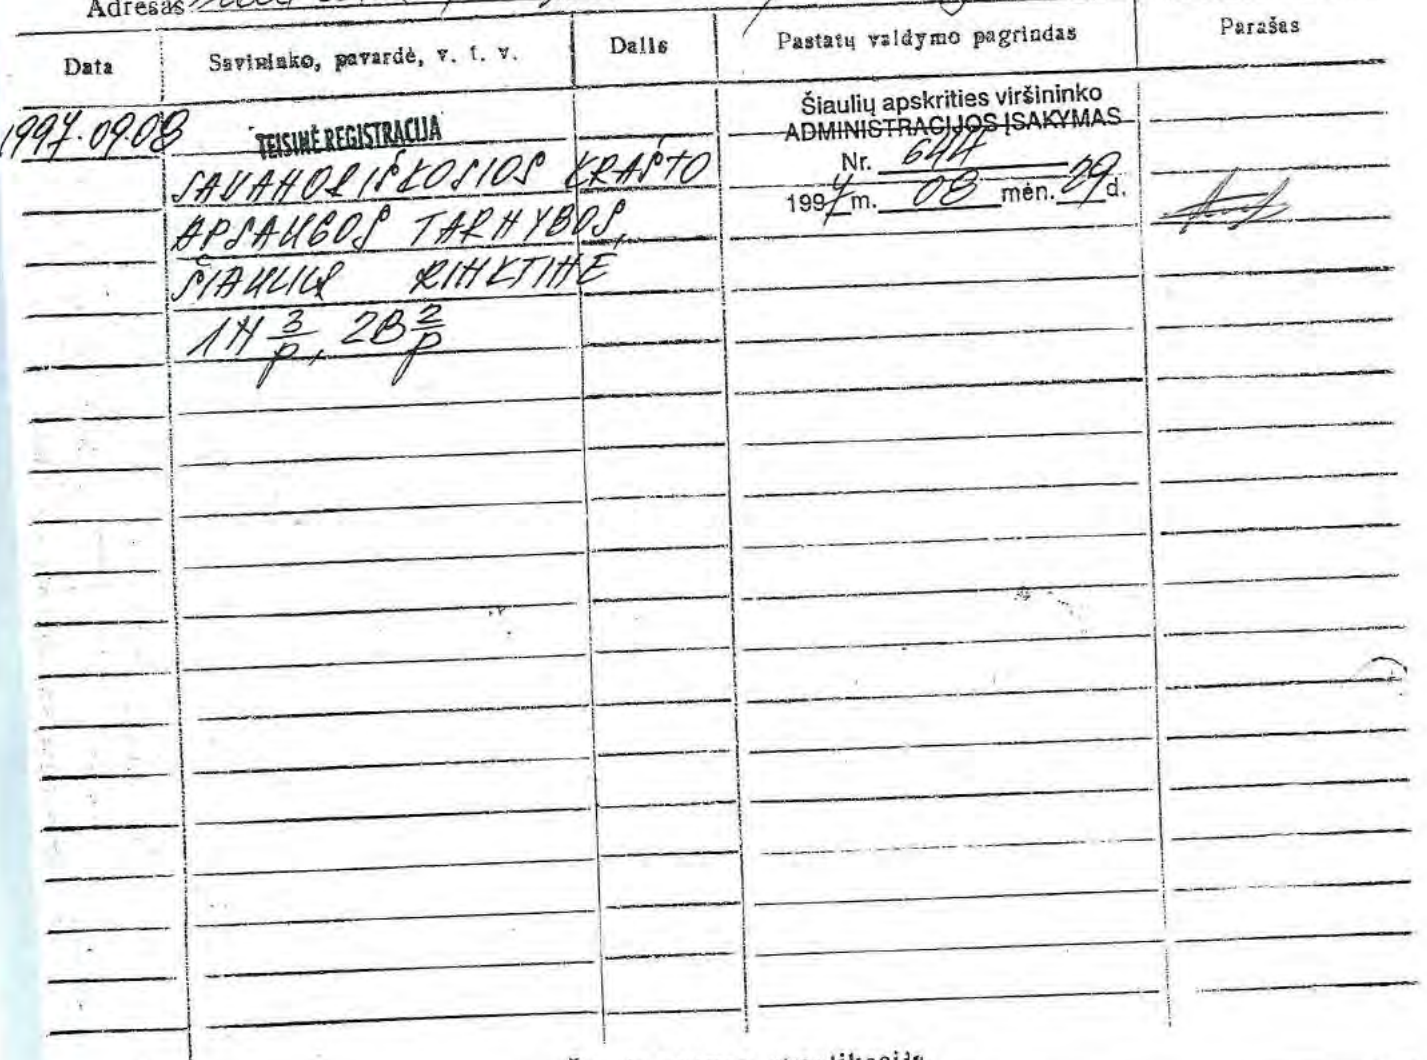 Adresas
Data Savininko, pavardė, v. t. v. Dalis Pastatų valdymo pagrindas Parašas
1997.09.08 TEISINĖ REGISTRACIJA
SAVANORIŠKOSIOS KRAŠTO
APSAUGOS TARNYBOS,
ŠIAULIŲ RINKTINĖ
1N 3/p, 2B 2/p
Šiaulių apskrities viršininko
ADMINISTRACIJOS ĮSAKYMAS
Nr. 644
1997 m. 08 mėn. 29 d.